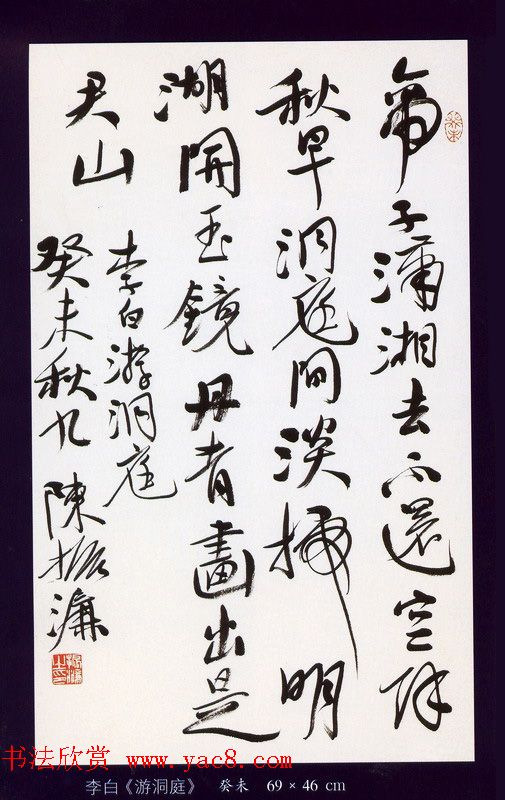 帝子瀟湘去不還空餘
秋草洞庭間淡掃明
湖開玉鏡丹青畫出是
君山
李白游洞庭
癸未秋九 陳振濂
书法欣赏 www.yac8.com
李白《游洞庭》 癸未 69 × 46 cm